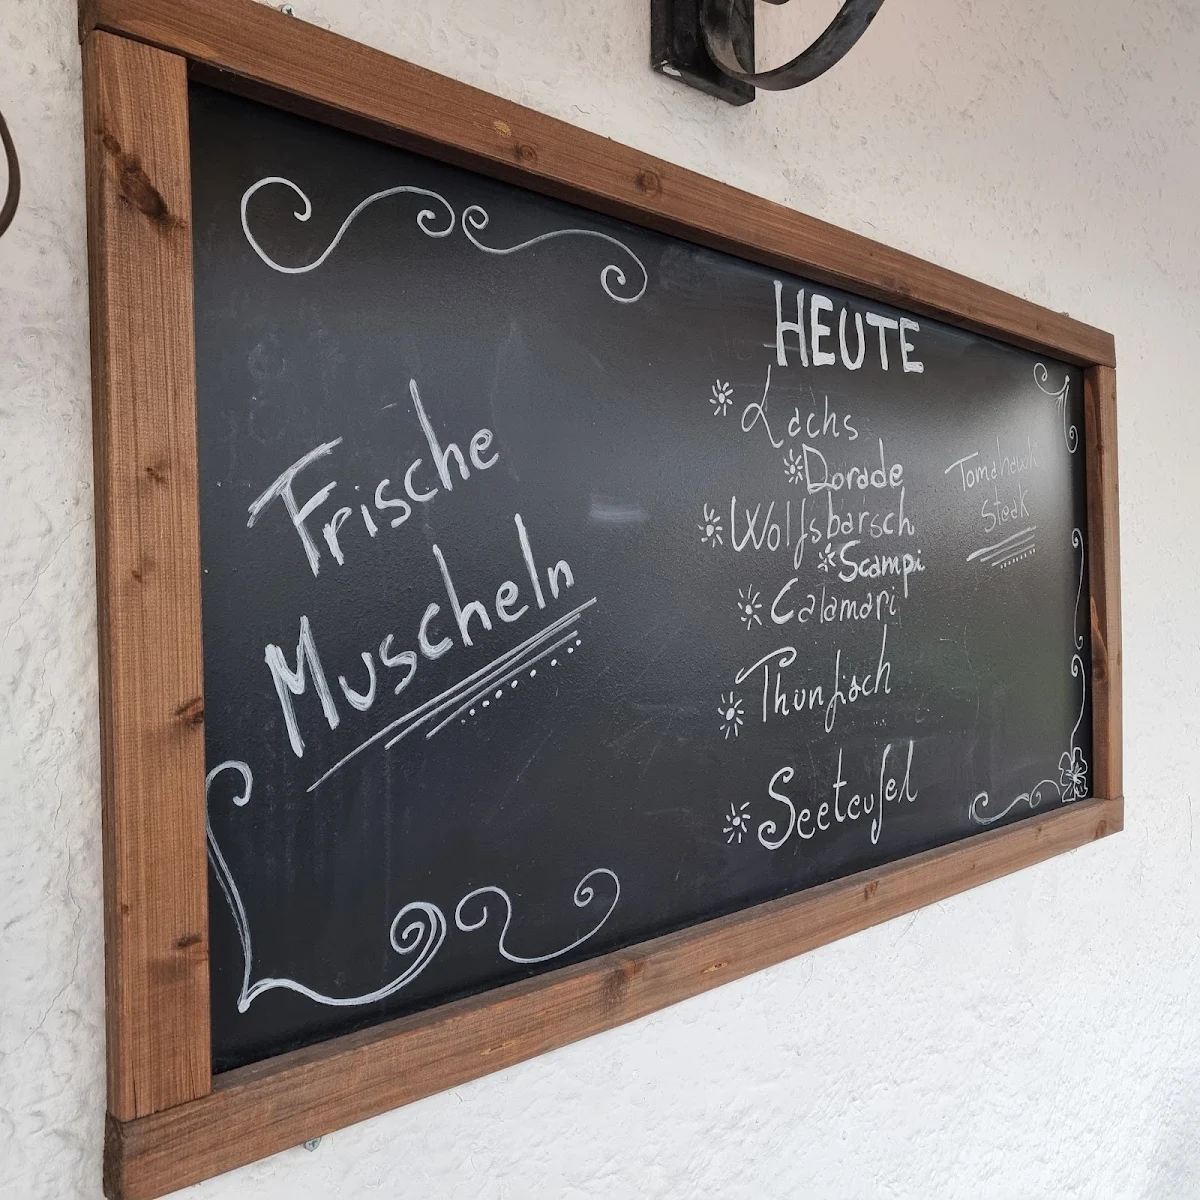 Frische
Muscheln
HEUTE
Lachs
Dorade
Wolfsbarsch
Scampi
Calamari
Thunfisch
Seeteufel
Tomahawk
Steak